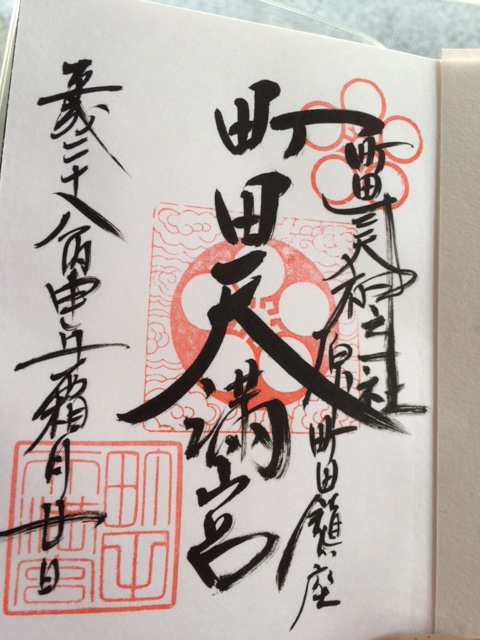 町田三天神之一社
原町田鎮座
町田天満宮
平成二十八年丙申年霜月廿日
町田天満宮